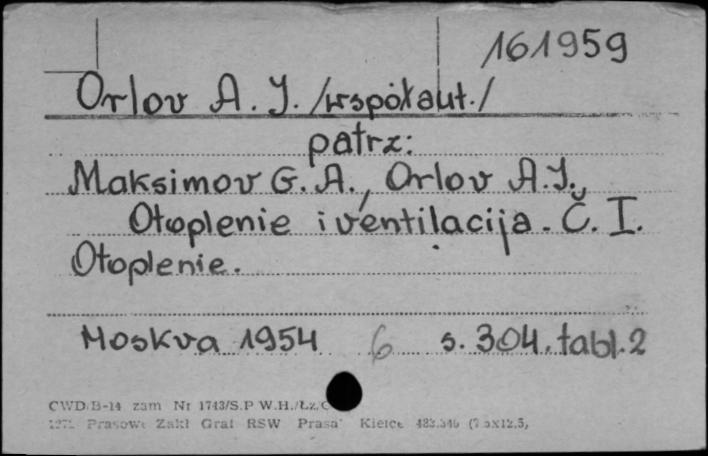 161959
Orlov A. J. /współaut./
patrz:
Maksimov G. A., Orlov A.J.,
Otoplenie i ventilacija. Č. I.
Otoplenie.
Moskva 1954 6 s. 304, tabl. 2
CWD/B-14 zam Nr 1743/S.P W.H./Łz/
Prasowe Zakł Graf RSW Prasa Kielce